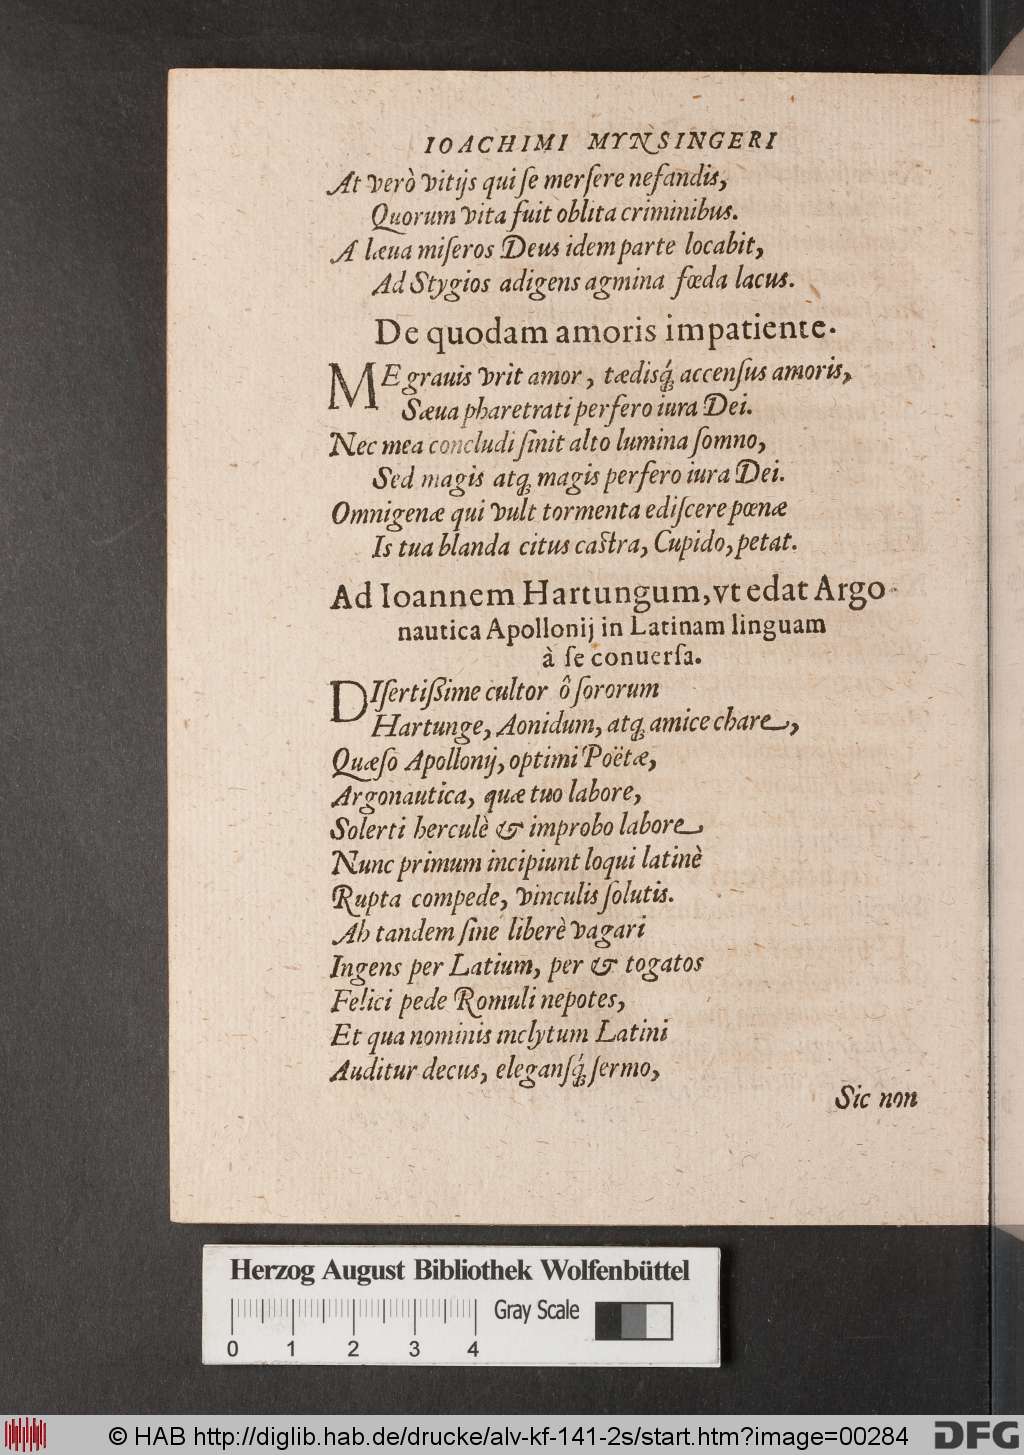 IOACHIMI MYNSINGERI
At verò vitijs qui ſe merſere nefandis,
Quorum vita fuit oblita criminibus.
A læua miſeros Deus idem parte locabit,
Ad Stygios adigens agmina fœda lacus.
De quodam amoris impatiente.
ME grauis vrit amor, tædisq́; accenſus amoris,
Sæua pharetrati perfero iura Dei.
Nec mea concludi ſinit alto lumina ſomno,
Sed magis atq; magis perfero iura Dei.
Omnigenæ qui vult tormenta ediſcere pœnæ
Is tua blanda citus caſtra, Cupido, petat.
Ad Ioannem Hartungum, vt edat Argo
nautica Apollonij in Latinam linguam
à ſe conuerſa.
DIſertißime cultor ô ſororum
Hartunge, Aonidum, atq; amice chare,
Quæſo Apollonij, optimi Poëtæ,
Argonautica, quæ tuo labore,
Solerti herculè & improbo labore
Nunc primum incipiunt loqui latinè
Rupta compede, vinculis ſolutis.
Ah tandem ſine liberè vagari
Ingens per Latium, per & togatos
Felici pede Romuli nepotes,
Et qua nominis inclytum Latini
Auditur decus, eleganſq́; ſermo,
Sic non
Herzog August Bibliothek Wolfenbüttel
Gray Scale
0 1 2 3 4
© HAB http://diglib.hab.de/drucke/alv-kf-141-2s/start.htm?image=00284
DFG